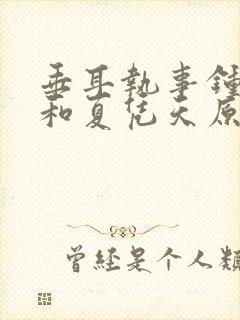 垂耳執事鍾
和夏凭天原
曾經是个人類